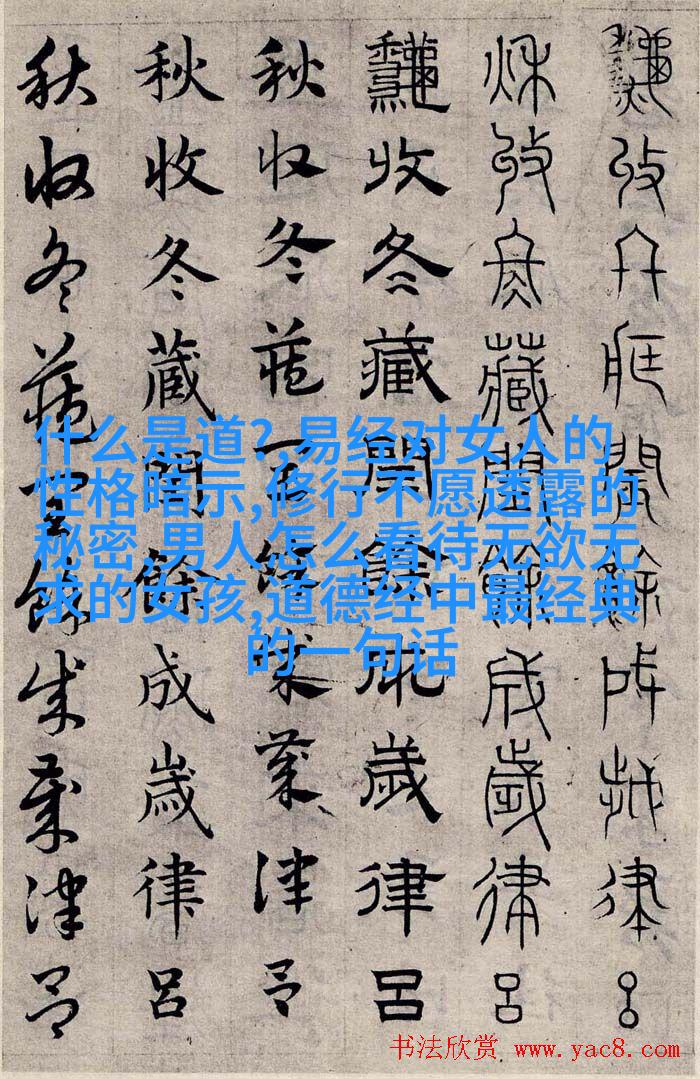 秋收冬藏閏餘成歲律呂
秋收冬藏閏餘成歲律呂
秋收冬藏閏餘成歲律呂
秋收冬藏閏餘成歲律呂
秋收冬藏閏餘成歲律呂
秋收冬藏閏餘成歲律呂
什么是道?,易经对女人的
性格暗示,修行不愿透露的
秘密,男人怎么看待无欲无
求的女孩,道德经中最经典
的一句话
书法欣赏 www.yac8.com